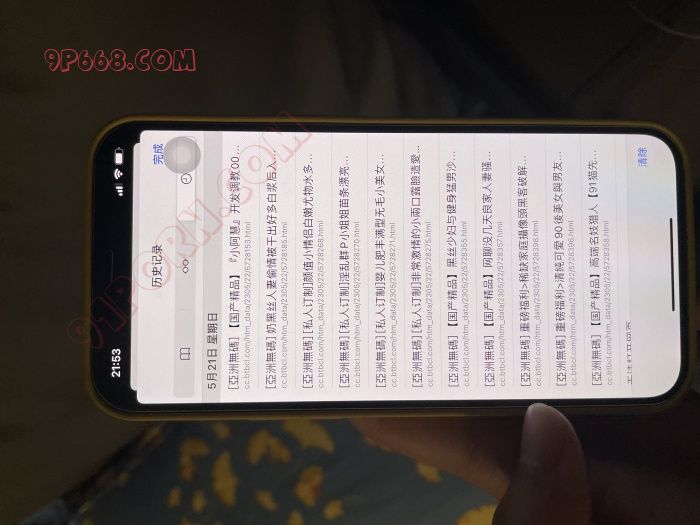 9P668.COM
91PORN.COM
21:53
历史记录
完成
5月21日 星期日
[亞洲無碼] 【国产精品】『小阿慧』开发调教00…
cc.btbcl.com/htm_data/2305/22/5728153.html
[亞洲無碼] 奶黑丝人妻偷情被干出好多白浆后入…
cc.btbcl.com/htm_data/2305/22/5728185.html
[亞洲無碼] [私人订制]颜值小情侣白嫩尤物水多…
cc.btbcl.com/htm_data/2305/22/5728168.html
[亞洲無碼] [私人订制]淫乱群P小姐姐苗条漂亮…
cc.btbcl.com/htm_data/2305/22/5728270.html
[亞洲無碼] [私人订制]婴儿肥丰满型无毛小美女…
cc.btbcl.com/htm_data/2305/22/5728271.html
[亞洲無碼] [私人订制]非常激情的小兩口露臉造愛…
cc.btbcl.com/htm_data/2305/22/5728275.html
[亞洲無碼] 【国产精品】黑丝少妇与健身猛男沙…
cc.btbcl.com/htm_data/2305/22/5728355.html
[亞洲無碼] 【国产精品】网聊没几天良家人妻骚…
cc.btbcl.com/htm_data/2305/22/5728357.html
[亞洲無碼] 重磅福利>稀缺家庭攝像頭黑客破解…
cc.btbcl.com/htm_data/2305/22/5728398.html
[亞洲無碼] 重磅福利>清純可愛90後美女與男友…
cc.btbcl.com/htm_data/2305/22/5728396.html
[亞洲無碼] 【国产精品】高端名妓猎人【91猫先…
cc.btbcl.com/htm_data/2305/22/5728358.html
清除